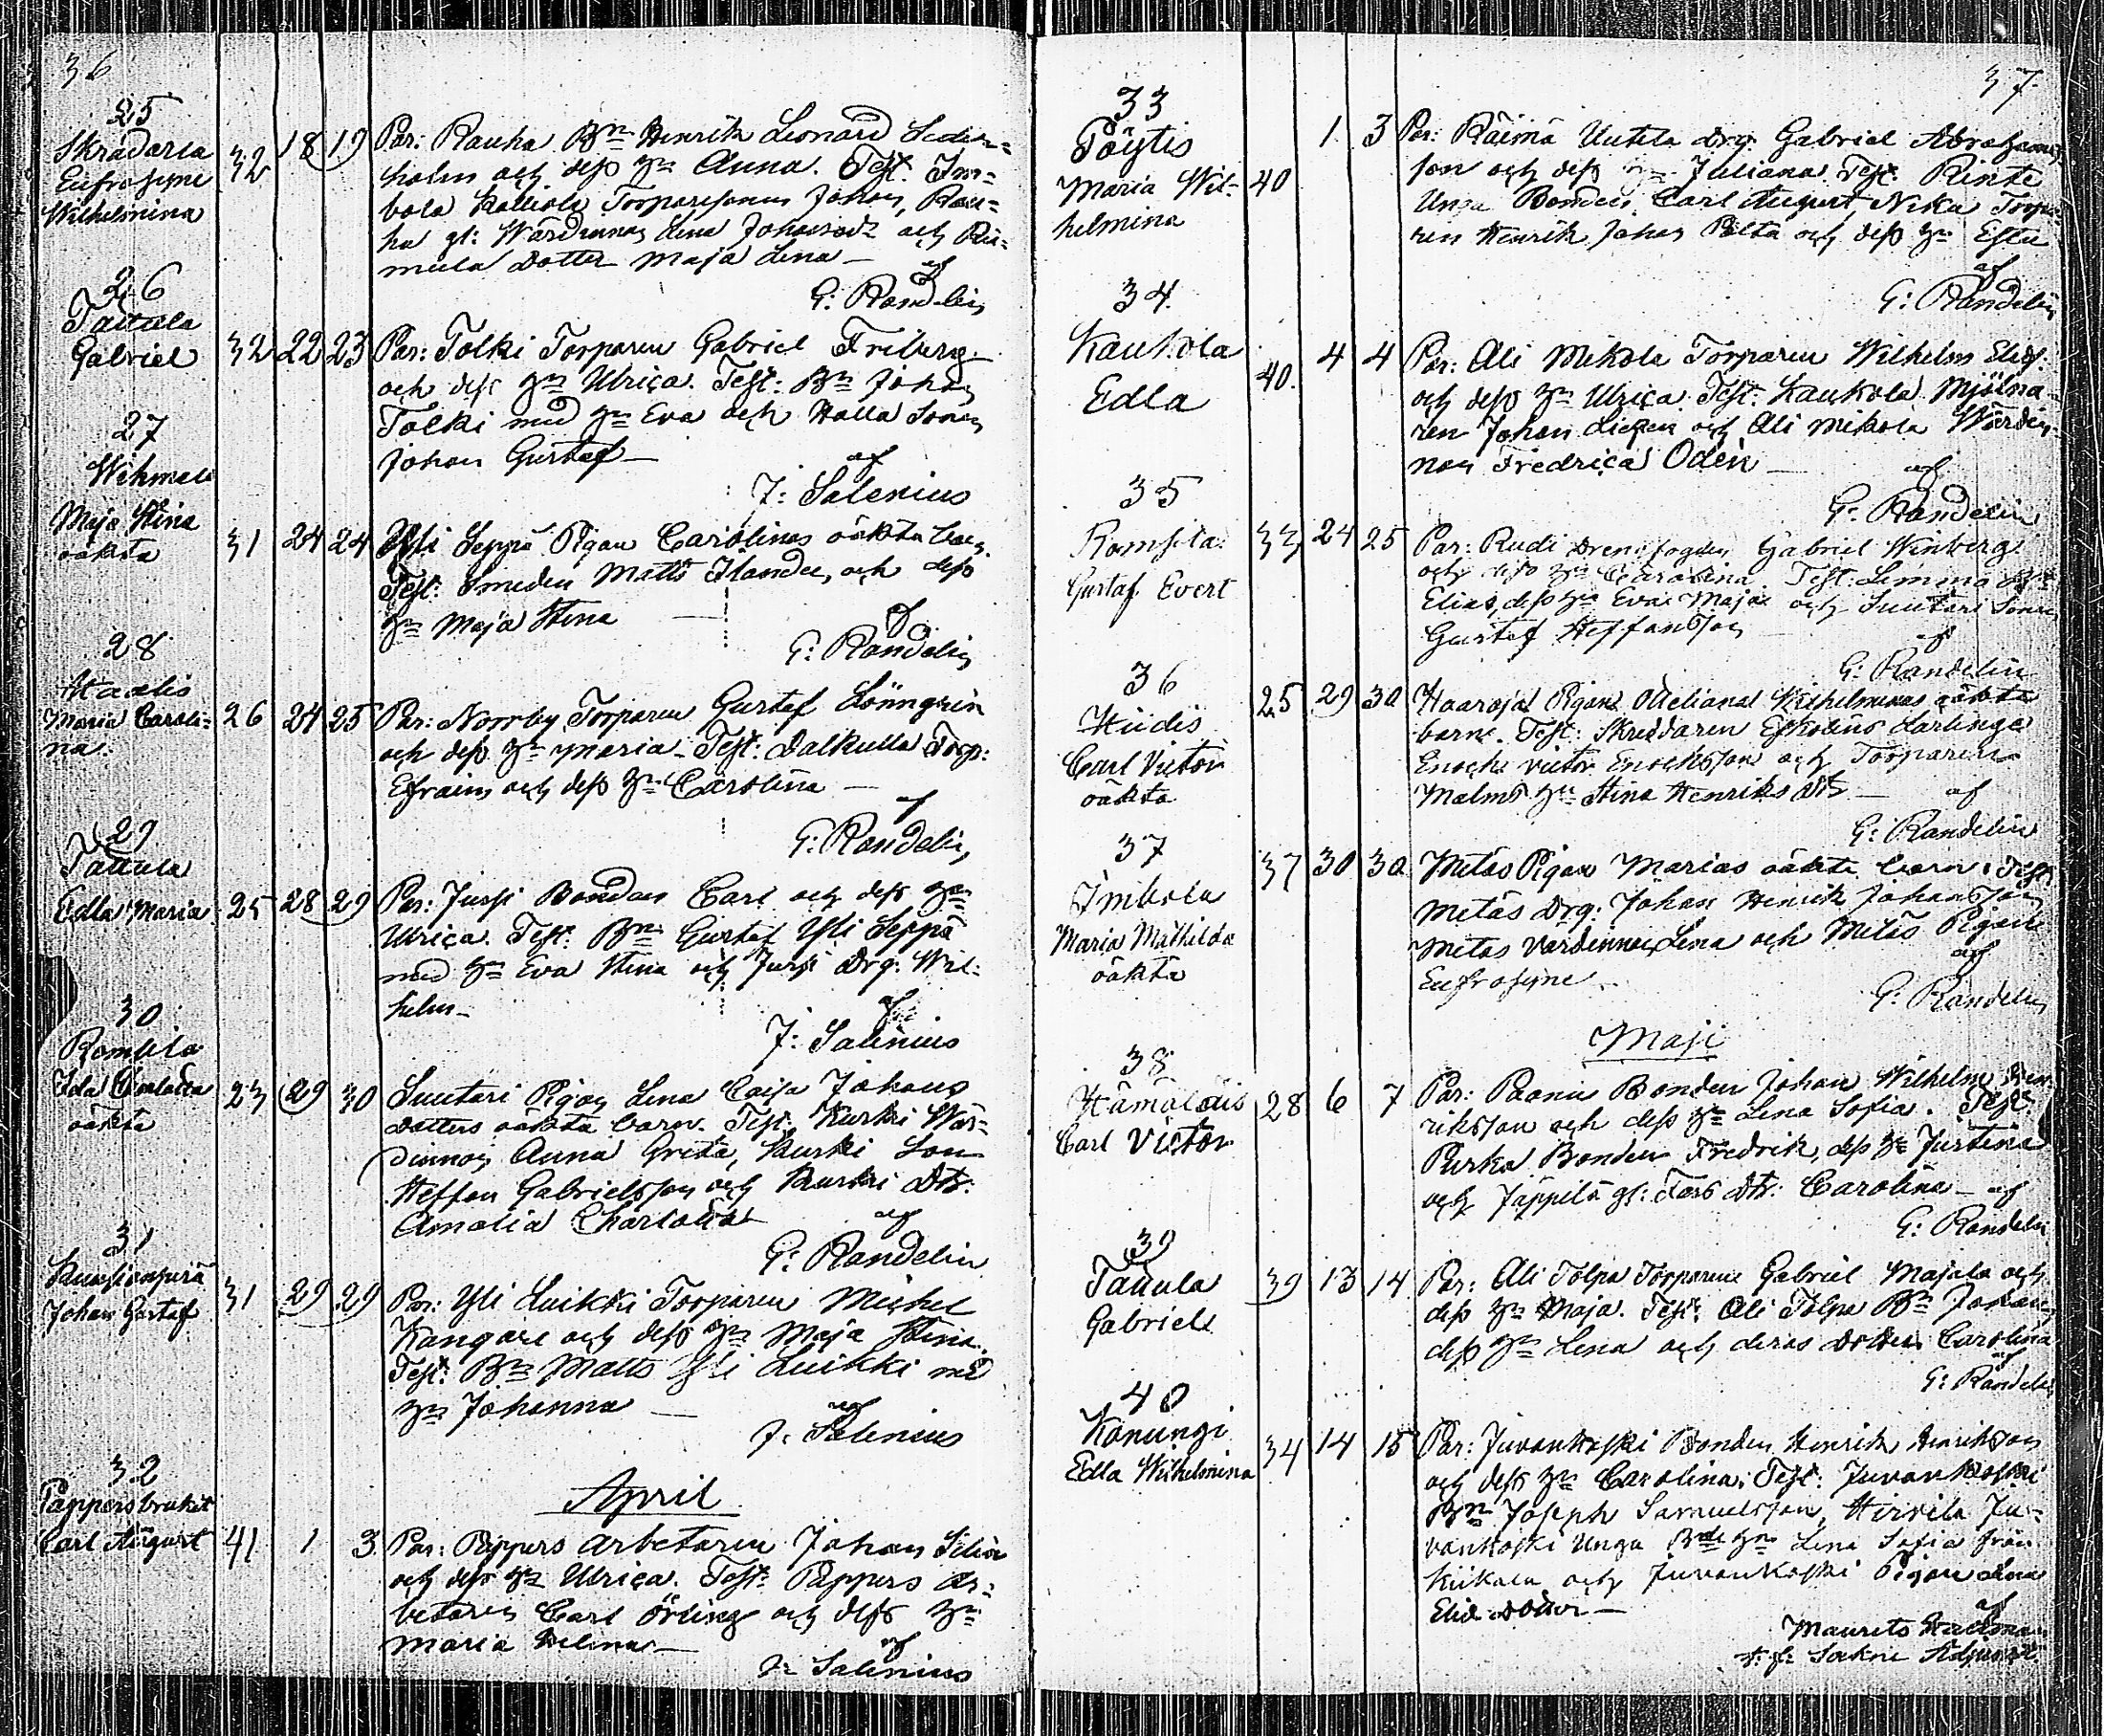 36
25
Skrädaria
Eufrosyne
Wilhelmina
32 18 19
Par: Rauha Bn Henrik Leonard Seder=
holm och dess Hu Anna. Test: Im=
bola Kalliola Torparesonen Johan, Rau=
ha gl: Wärdinnan Lena Johansdr och
Dotter Maja Lena —
af
G: Randelin
26
Tattula
Gabriel
32 22 23
Par: Tolki Torparen Gabriel Friberg
och dess Hu Ulrica. Test: Bn Johan
Tolki med Hu Eva och Halla Sonen
Johan Gustaf —
af
J: Salenius
27
Maja Stina
oäkta
31 24 24
Yli Seppä Pigan Carolinas oäkta barn.
Test: Smeden Matts Ilander, och dess
Hu Maja Stina —
af
G: Randelin
28
Maria Caroli=
na.
26 24 25
Par: Norrby Torparen Gustaf Lönngrén
och dess Hu Maria. Test: Dalkulla Torp:
Efraim och dess Hu Carolina —
af
G: Randelin,
29
Tattula
Edla Maria
25 28 29
Par: Jussi Bonden Carl och dess Hu
Ulrica. Test: Bn Gustaf Yli Seppä
med Hu Eva Stina och Jussi Drg: Wil=
helm —
af
J: Salenius
30
Romsila
Ida
oäkta
23 29 30
Suutari Pigan Lena Caisa Johans
dotters oäkta barn. Test: Kurki Wär=
dinnan Anna Greta, Kurki Son
Steffan Gabrielsson och Kurki Dtr:
Amalia Charlotta
af
G: Randelin
31
Johan Gustaf
31 29 29
Par: Yli Luikki Torparen Michel
Kangare och dess Hu Maja Stina.
Test: Bn Matts Yli Luikki med
Hu Johanna —
af
J: Salenius
April
32
Pappersbruket
Carl August
41 1 3
Par: Pappers Arbetaren Johan
och dess Hu Ulrica. Test: Pappers Ar=
betaren Carl Örling och dess Hu
Maria Helena —
af
J: Salenius
37
33
Pöytis
Maria Wil=
helmina
40 1 3
Par: Räimä Uutela Drg: Gabriel Abrahams
son och dess Hu Juliana. Test: Rinte
Unga Bonden Carl August, Torpa=
ren Henrik Johan Pelta och dess Hu
af
G: Randelin
34.
Kaukola
Edla
40. 4 4
Par: Ali Mikola Torparen Wilhelm
och dess Hu Ulrica. Test: Kaukola Mjölna=
ren Johan och Ali Mikola Wärdin=
nan Fredrica Odén —
af
G: Randelin
35
Romsila
Gustaf Evert
33 24 25
Par: Rudi Drengfogden Gabriel Winberg
och dess Hu Carolina. Test: Lemmä Bn
Elias, dess Hu Eva Maja och Suutari Sonen
Gustaf Steffansson
af
G: Randelin
36
Hiidis
Carl Victor
oäkta
25 29 30
Haaroja Pigan Melianas Wilhelminas oäkta
barn. Test: Skreddaren Lärlinge
Enoch Victor Enocksson och Torparen
Malms Hu Stina Henriks Dtr —
af
G: Randelin
37
Imbola
Maria Mathilda
oäkta
37 30 30
Metäs Pigan Marias oäkta barn. Test:
Metäs Drg: Johan Henrik Johansson,
Metäs Värdinnan Lena och Metäs Pigan
Eufrosyne
af
G: Randelin
Maji
38
Carl Victor
28 6 7
Par: Paanu Bonden Johan Wilhelm Hen
riksson och dess Hu Lena Sofia. Test:
Purka Bonden Fredrik, dess Hu Justina
och Jäppilä gl: Dtr: Carolina — af
G: Randelin
39
Tattula
Gabriel
39 13 14
Par: Ali Tolpa Torparen Gabriel Majala och
dess Hu Maja. Test: Ali Tolpa Bn Johan,
dess Hu Lena och deras Dotter Carolina
af
G: Randelin
40
Kanungi
Edla Wilhelmina
34 14 15
Par: Juvankoski Bonden Henrik Henriksson
och dess Hu Carolina; Test: Juvankoski
Bn Joseph Samuelsson, Hirvelä Ju=
vankoski Unga Bnde Hu Lena Sofia från
Kiikala och Juvankoski Pigan Lena
Elis dotter —
af
Maurits
t. f: Sockne Adjunkt